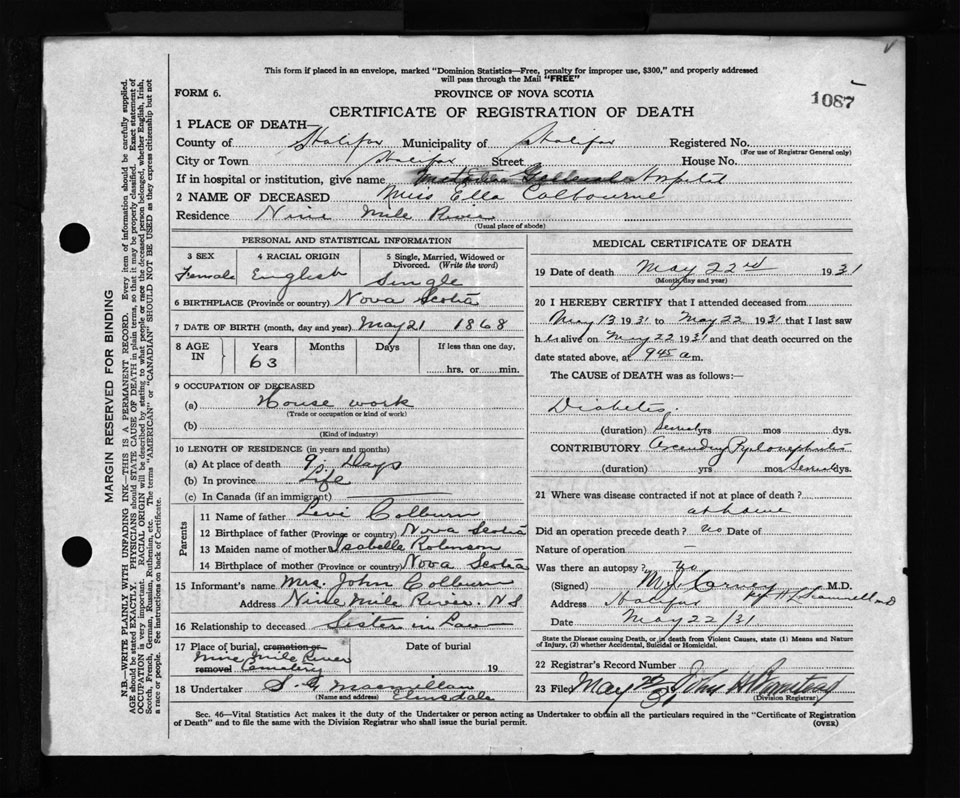 This form if placed in an envelope, marked "Dominion Statistics—Free, penalty for improper use, $300," and properly addressed
will pass through the Mail "FREE"
FORM 6.
PROVINCE OF NOVA SCOTIA
1087
CERTIFICATE OF REGISTRATION OF DEATH
1 PLACE OF DEATH—
County of Halifax Municipality of Halifax Registered No.
(For use of Registrar General only)
City or Town Halifax Street House No.
If in hospital or institution, give name Hospital
2 NAME OF DECEASED Miss Ella Colbourne
Residence Nine Mile River
(Usual place of abode)
PERSONAL AND STATISTICAL INFORMATION
3 SEX 4 RACIAL ORIGIN 5 Single, Married, Widowed or Divorced. (Write the word)
Female English Single
6 BIRTHPLACE (Province or country) Nova Scotia
7 DATE OF BIRTH (month, day and year) May 21 1868
8 AGE IN Years Months Days If less than one day,
63 hrs. or min.
9 OCCUPATION OF DECEASED
(a) House work
(Trade or occupation or kind of work)
(b)
(Kind of industry)
10 LENGTH OF RESIDENCE (in years and months)
(a) At place of death 9 Days
(b) In province Life
(c) In Canada (if an immigrant)
Parents
11 Name of father Levi Colburn
12 Birthplace of father (Province or country) Nova Scotia
13 Maiden name of mother Isabelle Robinson
14 Birthplace of mother (Province or country) Nova Scotia
15 Informant's name Mrs. John Colburn
Address Nine Mile River. N S
16 Relationship to deceased Sister in Law
17 Place of burial, cremation or removal Date of burial
Nine Mile River
Cemetery 19
18 Undertaker S. G Macmillan
(Name and address) Elmsdale
MEDICAL CERTIFICATE OF DEATH
19 Date of death May 22nd 1931
(Month, day and year)
20 I HEREBY CERTIFY that I attended deceased from
May 13 1931 to May 22 1931 that I last saw
her alive on May 22 1931 and that death occurred on the
date stated above, at 9 45 a m.
The CAUSE of DEATH was as follows:—
Diabetes.
(duration) Several yrs mos dys.
CONTRIBUTORY Ascending Pyelonephritis
(duration) yrs mos Several dys.
21 Where was disease contracted if not at place of death?
at home
Did an operation precede death? no Date of
Nature of operation —
Was there an autopsy? no
(Signed) Carney M.D.
Address Halifax
Date May 22/31
State the Disease causing Death, or in death from Violent Causes, state (1) Means and Nature
of Injury, (2) whether Accidental, Suicidal or Homicidal.
22 Registrar's Record Number
23 Filed May John
(Division Registrar)
Sec. 46—Vital Statistics Act makes it the duty of the Undertaker or person acting as Undertaker to obtain all the particulars required in the "Certificate of Registration
of Death" and to file the same with the Division Registrar who shall issue the burial permit.
(OVER)
MARGIN RESERVED FOR BINDING
N.B.—WRITE PLAINLY WITH UNFADING INK—THIS IS A PERMANENT RECORD. Every item of information should be carefully supplied.
AGE should be stated EXACTLY. PHYSICIANS should STATE CAUSE OF DEATH in plain terms, so that it may be properly classified. Exact statement of
OCCUPATION is very important. RACIAL ORIGIN will be described by stating to what people or race the deceased person belonged, whether English, Irish,
Scotch, French, German, Russian, Ruthenian, etc. The terms "AMERICAN" or "CANADIAN" SHOULD NOT BE USED as they express citizenship but not
a race or people. See instructions on back of Certificate.